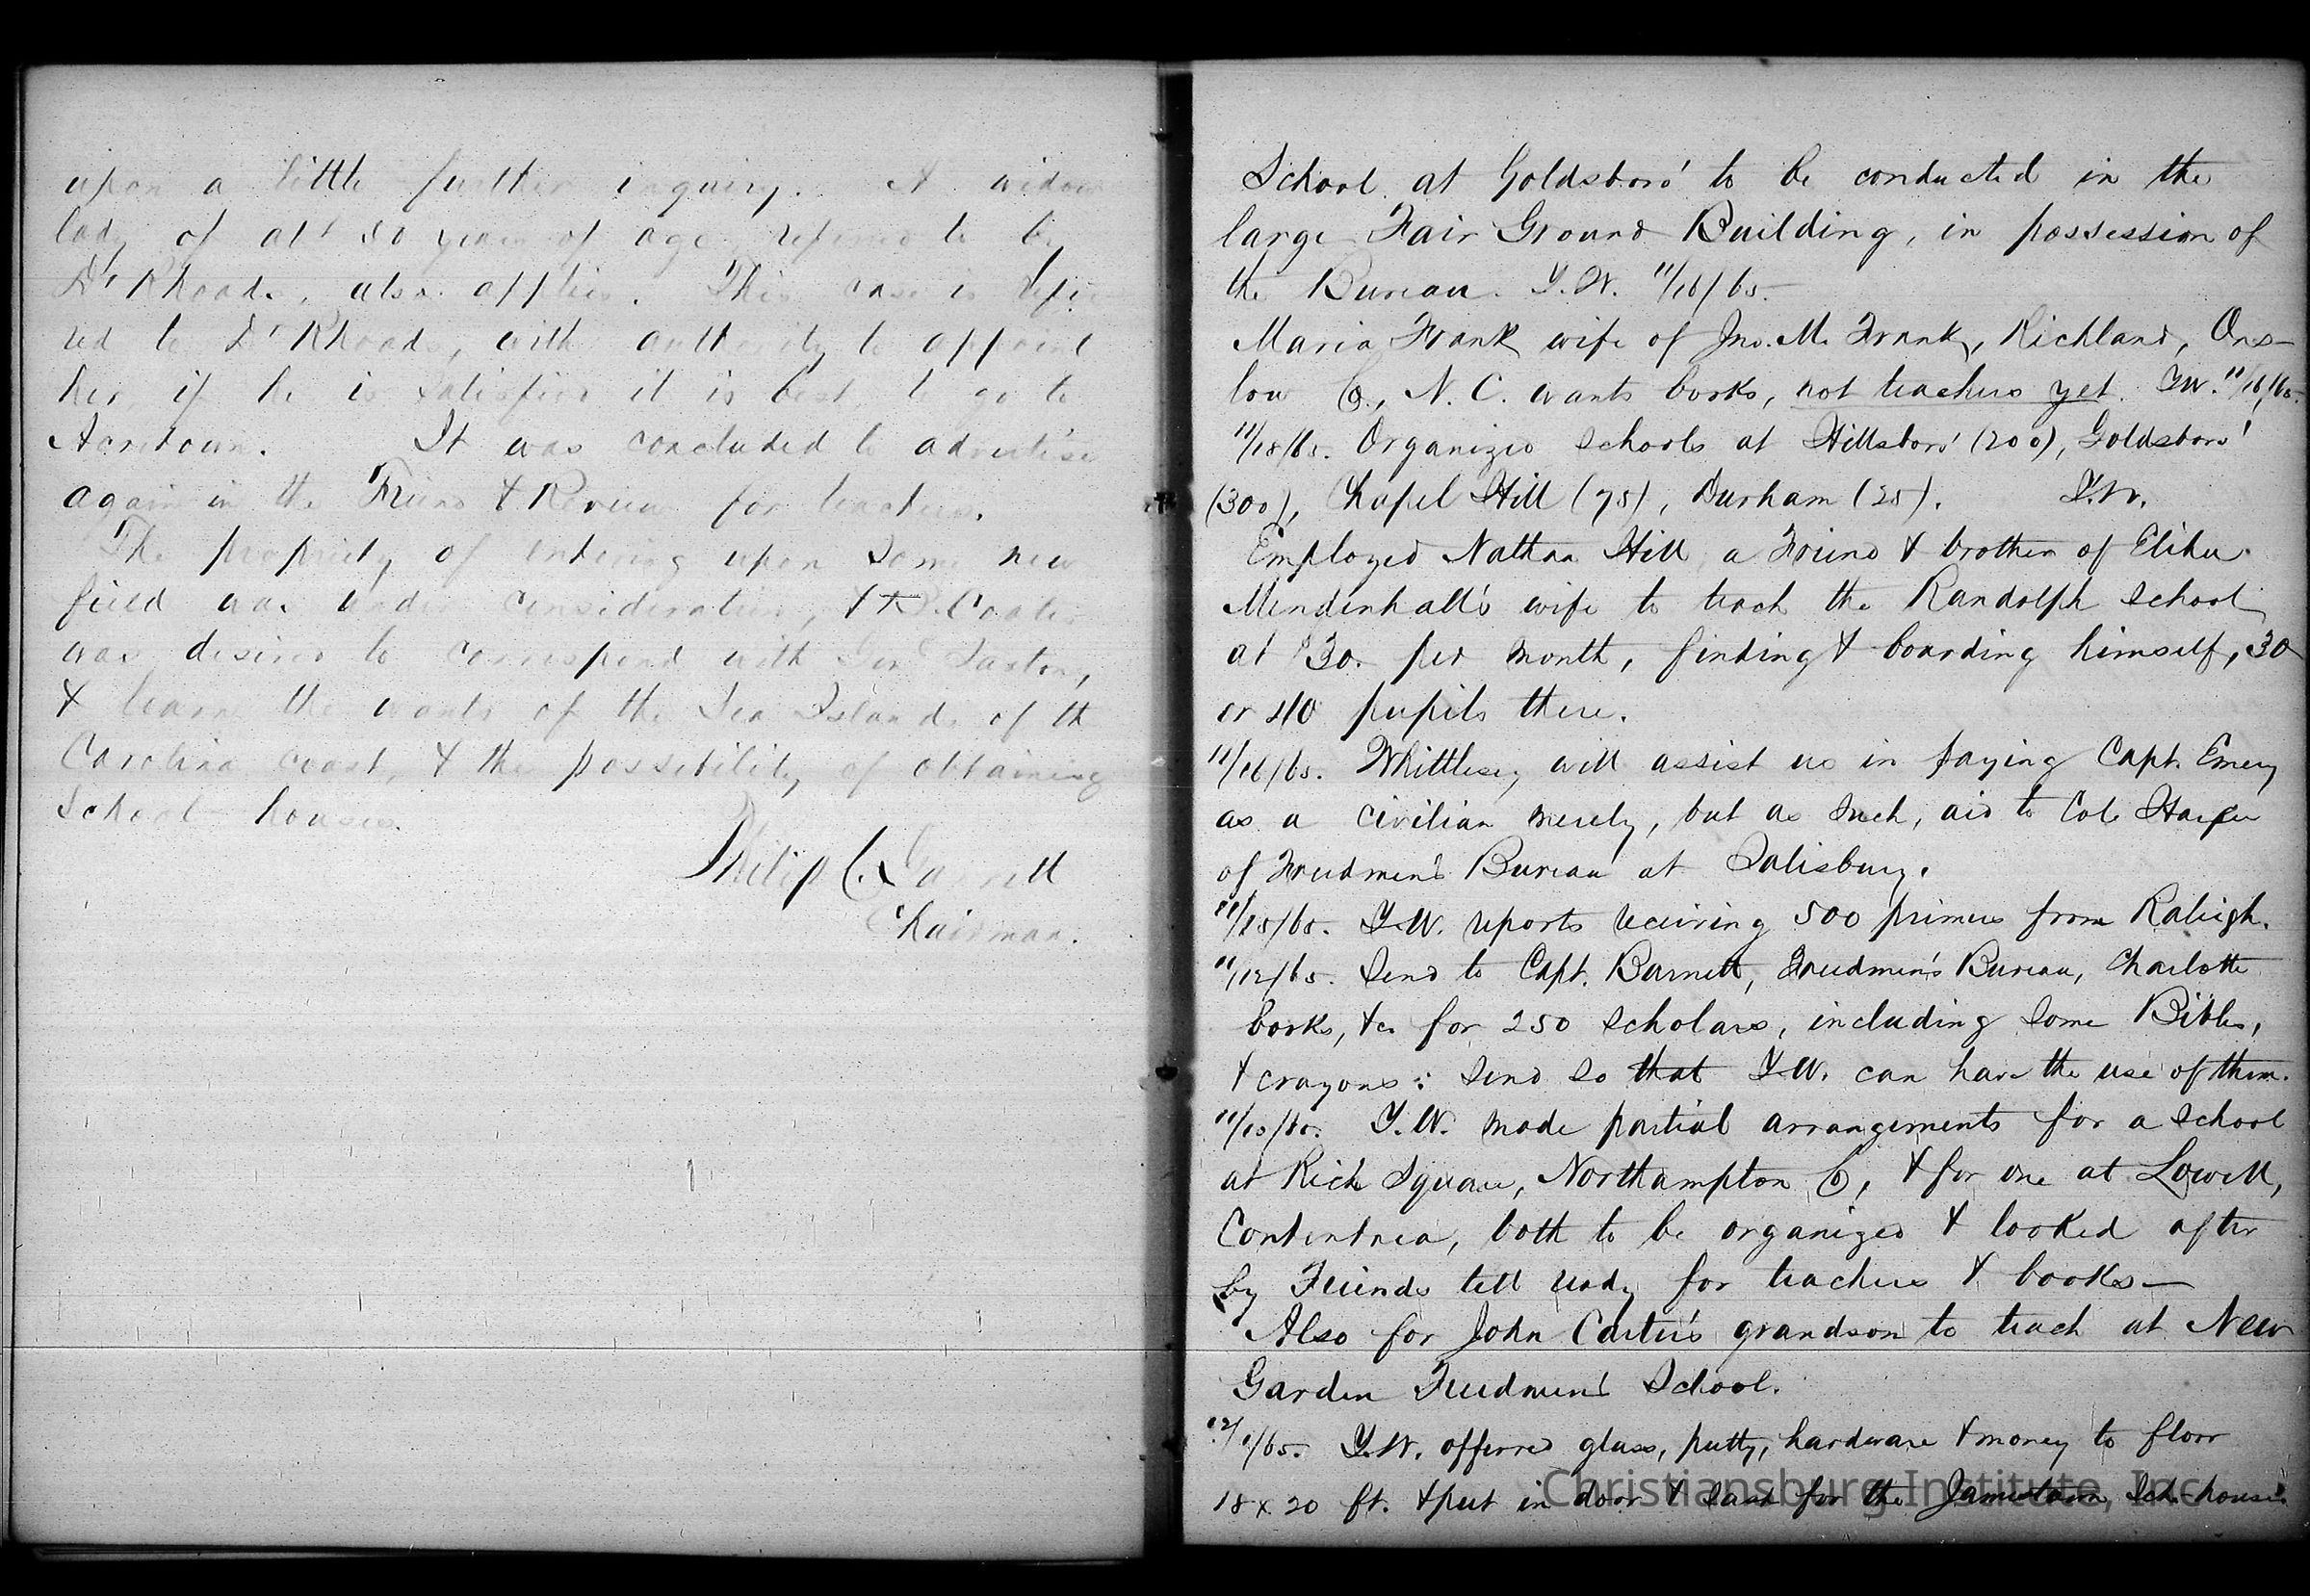 upon a little further inquiry. A widow
lady of abt 50 years of age referred to by
Dr Rhoads, also applies. This case is refer
red to Dr Rhoads, with authority to appoint
her if he is satisfied it is best to go to
It was concluded to advertise
again in the Friend & Review for teachers.
The propriety of entering upon some new
field was under consideration, &
was desired to correspond with Genl Saxton,
& learn the wants of the Sea Islands of th
Carolina coast, & the possibility of obtaining
School houses.
Philip C. Garrett
Chairman.
School at Goldsboro' to be conducted in the
large Fair Ground Building, in possession of
the Bureau. Y.W. 11/16/65.
Maria Frank wife of Jno. M. Frank, Richland, Ons-
low Co., N. C. wants books, not teachers yet. Y.W. 11/16/65.
11/18/65. Organized schools at Hillsboro' (200), Goldsboro'
(300), Chapel Hill (75), Durham (25). Y.W.
Employed Nathan Hill a Friend & brother of Elihu
Mendenhall's wife to teach the Randolph School
at $30. per month, finding & boarding himself, 30
or 40 pupils there.
11/16/65. Whittlesey will assist us in paying Capt. Emery
as a civilian merely, but as such, aid to Col. Harper
of Freedmen's Bureau at Salisbury.
11/15/65. Y.W. reports receiving 500 primers from Raleigh.
11/12/65. Send to Capt. Barnett, Freedmen's Bureau, Charlotte
books, &c. for 250 scholars, including some Bibles,
& crayons: send so that Y.W. can have the use of them.
11/10/65. Y.W. made partial arrangements for a school
at Rich Square, Northampton Co, & for one at Lowell,
Contentnea, both to be organized & looked after
by Friends till ready for teachers & books—
Also for John Carter's grandson to teach at New
Garden Freedmen's School.
12/1/65. Y.W. offerred glass, putty, hardware & money to floor
18 x 20 ft. & put in door & sash for the Jamestown Sch. house
Christiansburg Institute, Inc